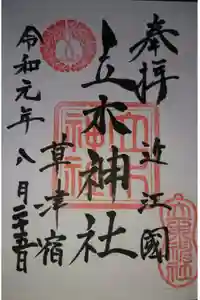 奉拝
近江國
立木神社
草津宿
令和元年八月二十五日